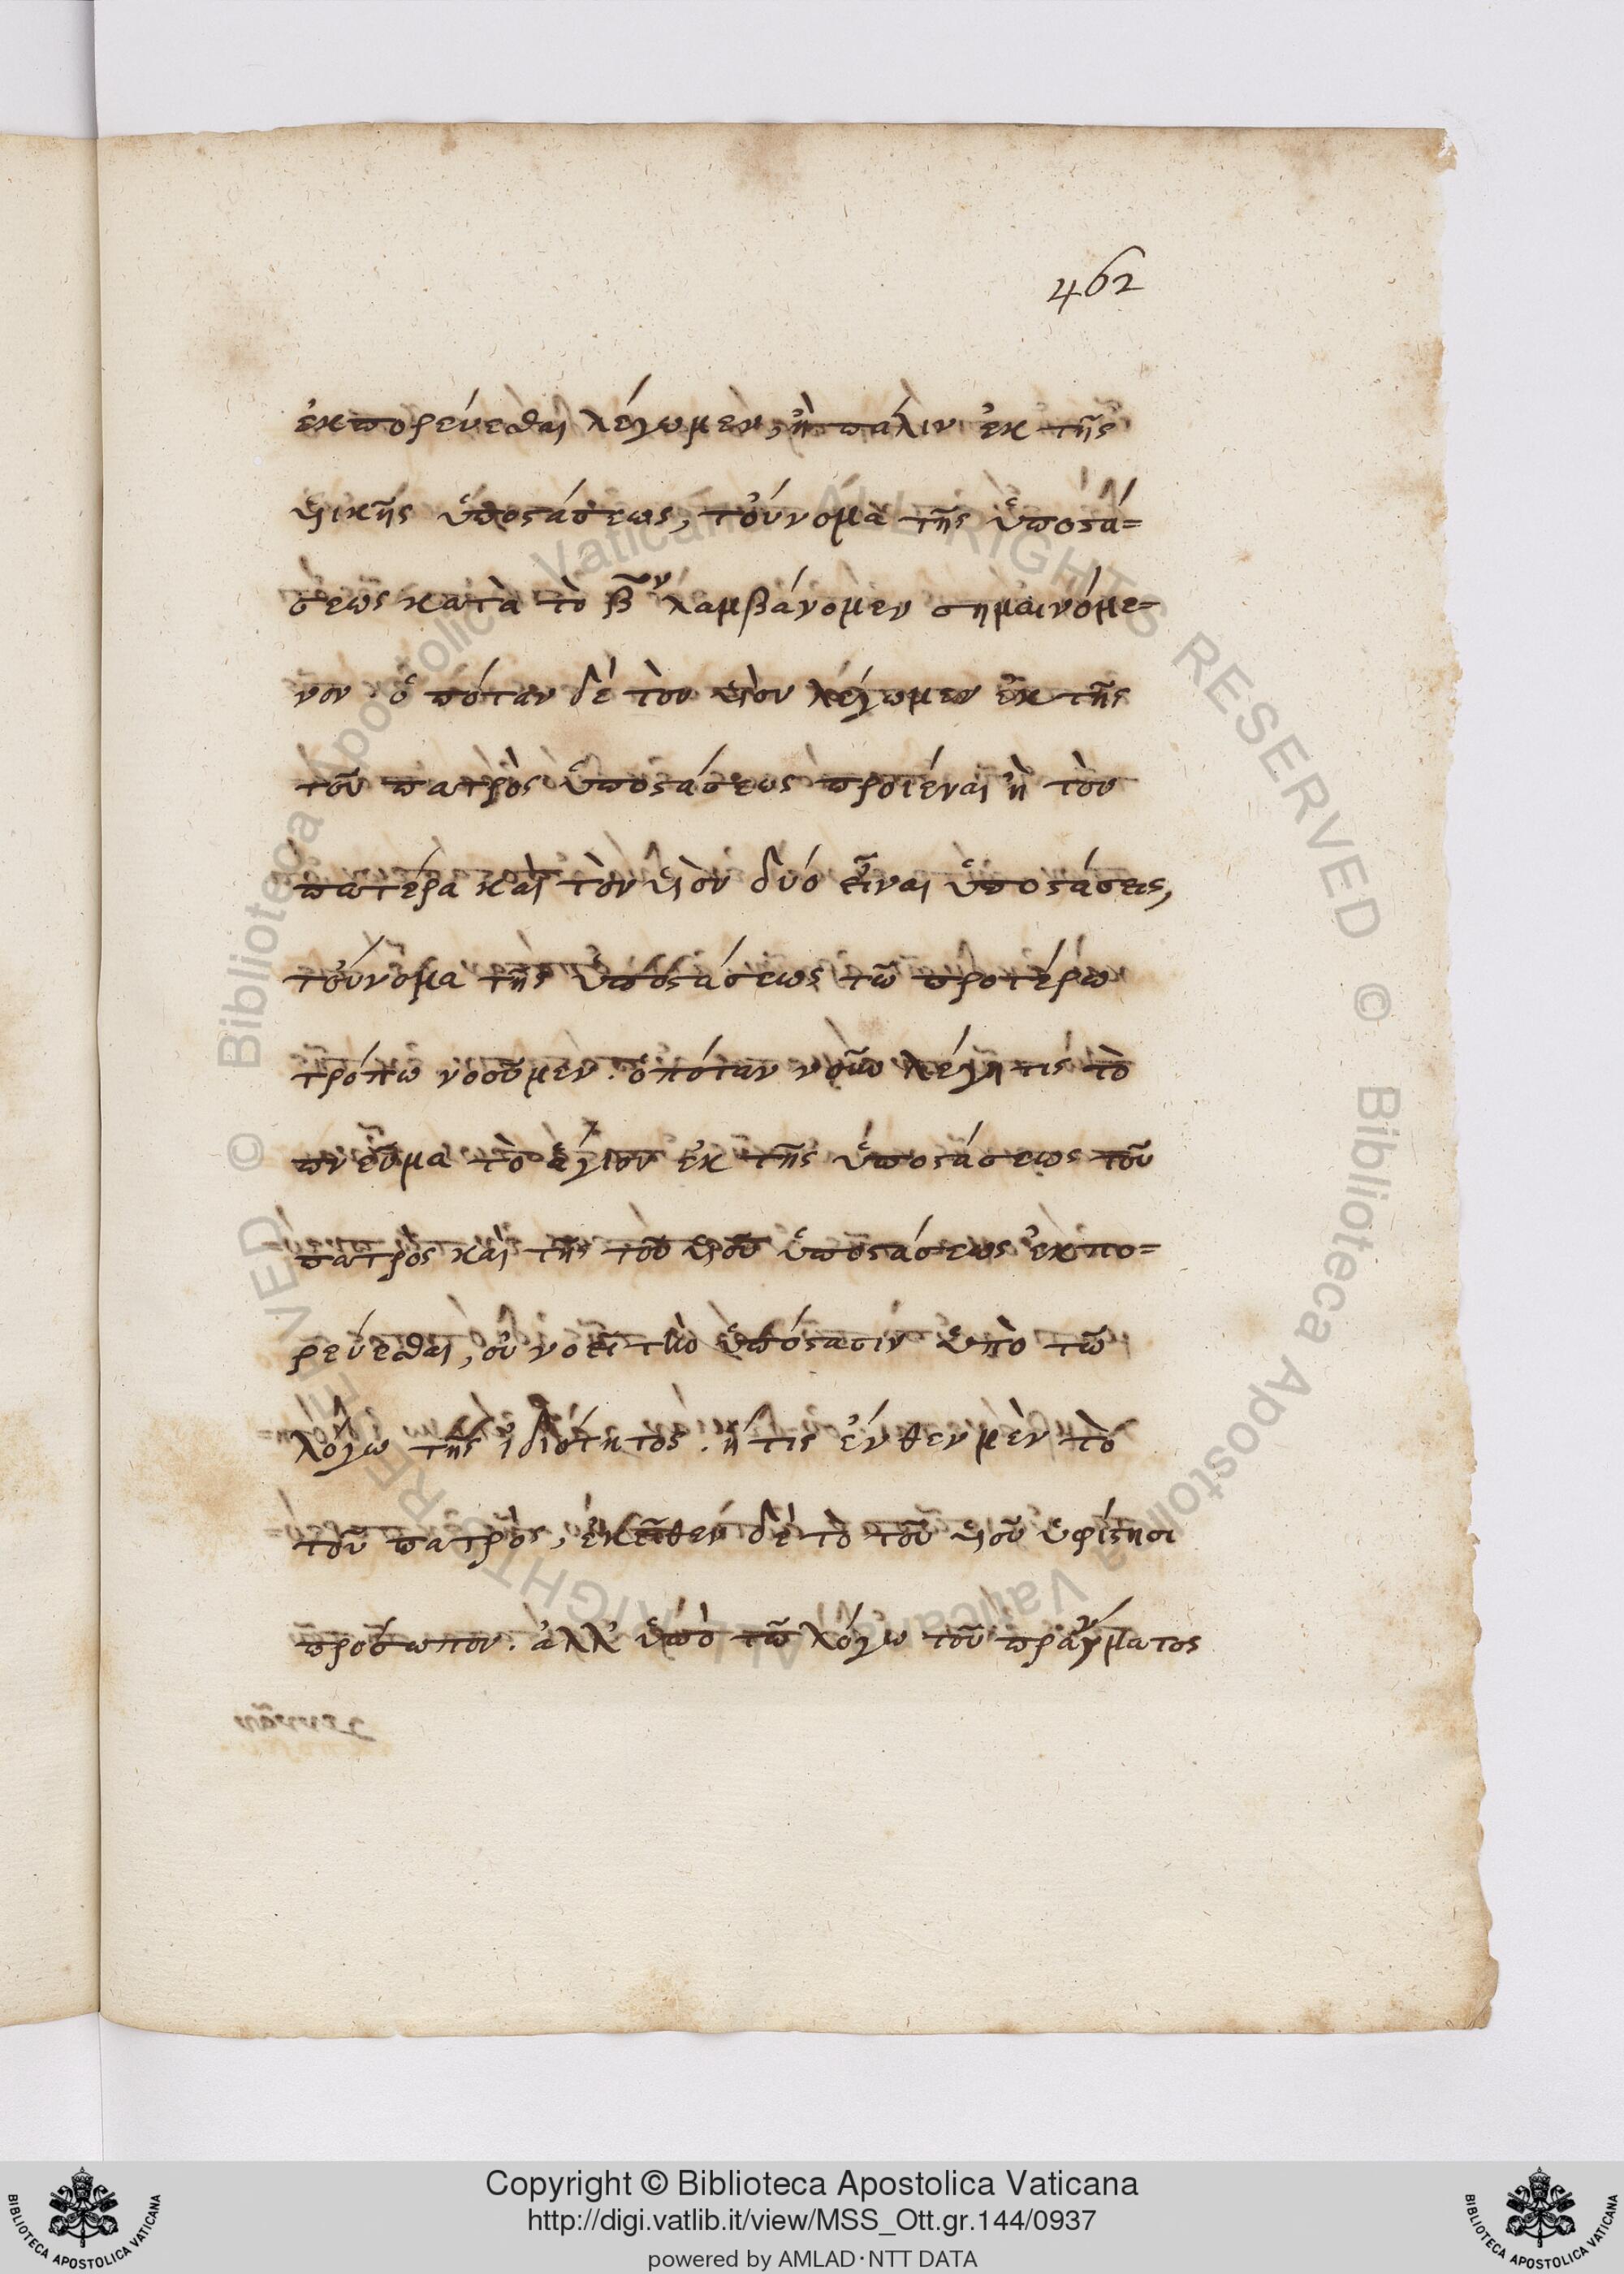 462
ἐκπορεύεσθαι λέγωμεν, ἢ πάλιν ἐκ τῆς
υἱικῆς ὑποστάσεως, τοὔνομα τῆς ὑποστά=
σεως κατὰ τὸ β̅ον λαμβάνομεν σημαινόμε=
νον. ὁπόταν δὲ τὸν υἱὸν λέγωμεν ἐκ τῆς
τοῦ πατρὸς ὑποστάσεως προϊέναι ἢ τὸν
πατέρα καὶ τὸν υἱὸν δύο εἶναι ὑποστάσεις,
τοὔνομα τῆς ὑποστάσεως τῶ προτέρω
τρόπω νοοῦμεν. ὁπόταν λέγη τις τὸ
πνεῦμα τὸ ἅγιον ἐκ τῆς ὑποστάσεως τοῦ
πατρὸς καὶ τῆς τοῦ υἱοῦ ὑποστάσεως ἐκπο=
ρεύεσθαι, οὐ νοεῖ τὴν ὑπόστασιν ὑπὸ τῶ
λόγω τῆς ἰδιότητος. ἥτις ἔνθεν μὲν τὸ
τοῦ πατρὸς, ἐκεῖθεν δὲ τὸ τοῦ υἱοῦ ὑφίστησι
πρόσωπον. ἀλλ' ὑπὸ τῶ λόγω τοῦ πράγματος
Copyright © Biblioteca Apostolica Vaticana
http://digi.vatlib.it/view/MSS_Ott.gr.144/0937
powered by AMLAD·NTT DATA
BIBLIOTECA APOSTOLICA VATICANA
BIBLIOTECA APOSTOLICA VATICANA
© Biblioteca Apostolica Vaticana ALL RIGHTS RESERVED © Biblioteca Apostolica Vaticana ALL RIGHTS RESERVED